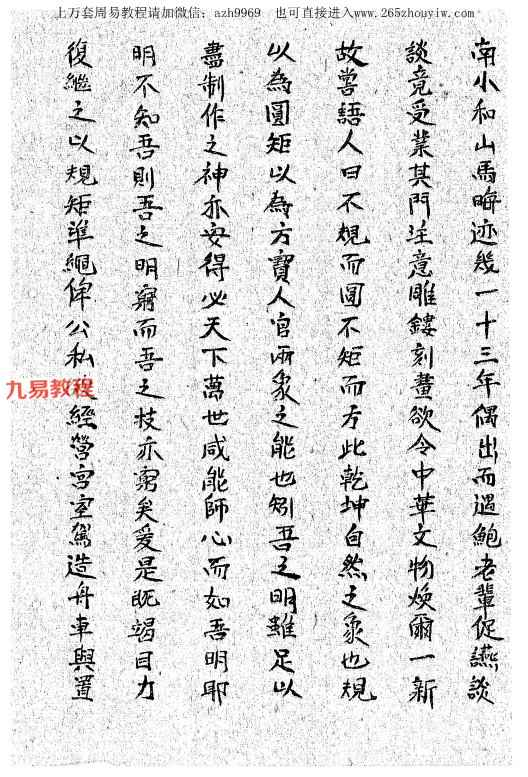 上万套周易教程请加微信：azh9969　也可直接进入www.265zhouyiw.com
南小和山馬晦迹幾一十三年偶出而過鮑老輩促讌談
談竟受業其門注意雕鏤刻畫欲令中華文物煥爾一新
故嘗語人曰不規而圓不矩而方此乾坤自然之象也規
以為圓矩以為方實人官兩象之能也矧吾之明雖足以
盡制作之神亦安得必天下萬世咸能師心而如吾明耶
明不知吾則吾之明窮而吾之技亦窮矣爰是既竭目力
復繼之以規矩準繩俾公私經營宮室駕造舟車與置
九易教程